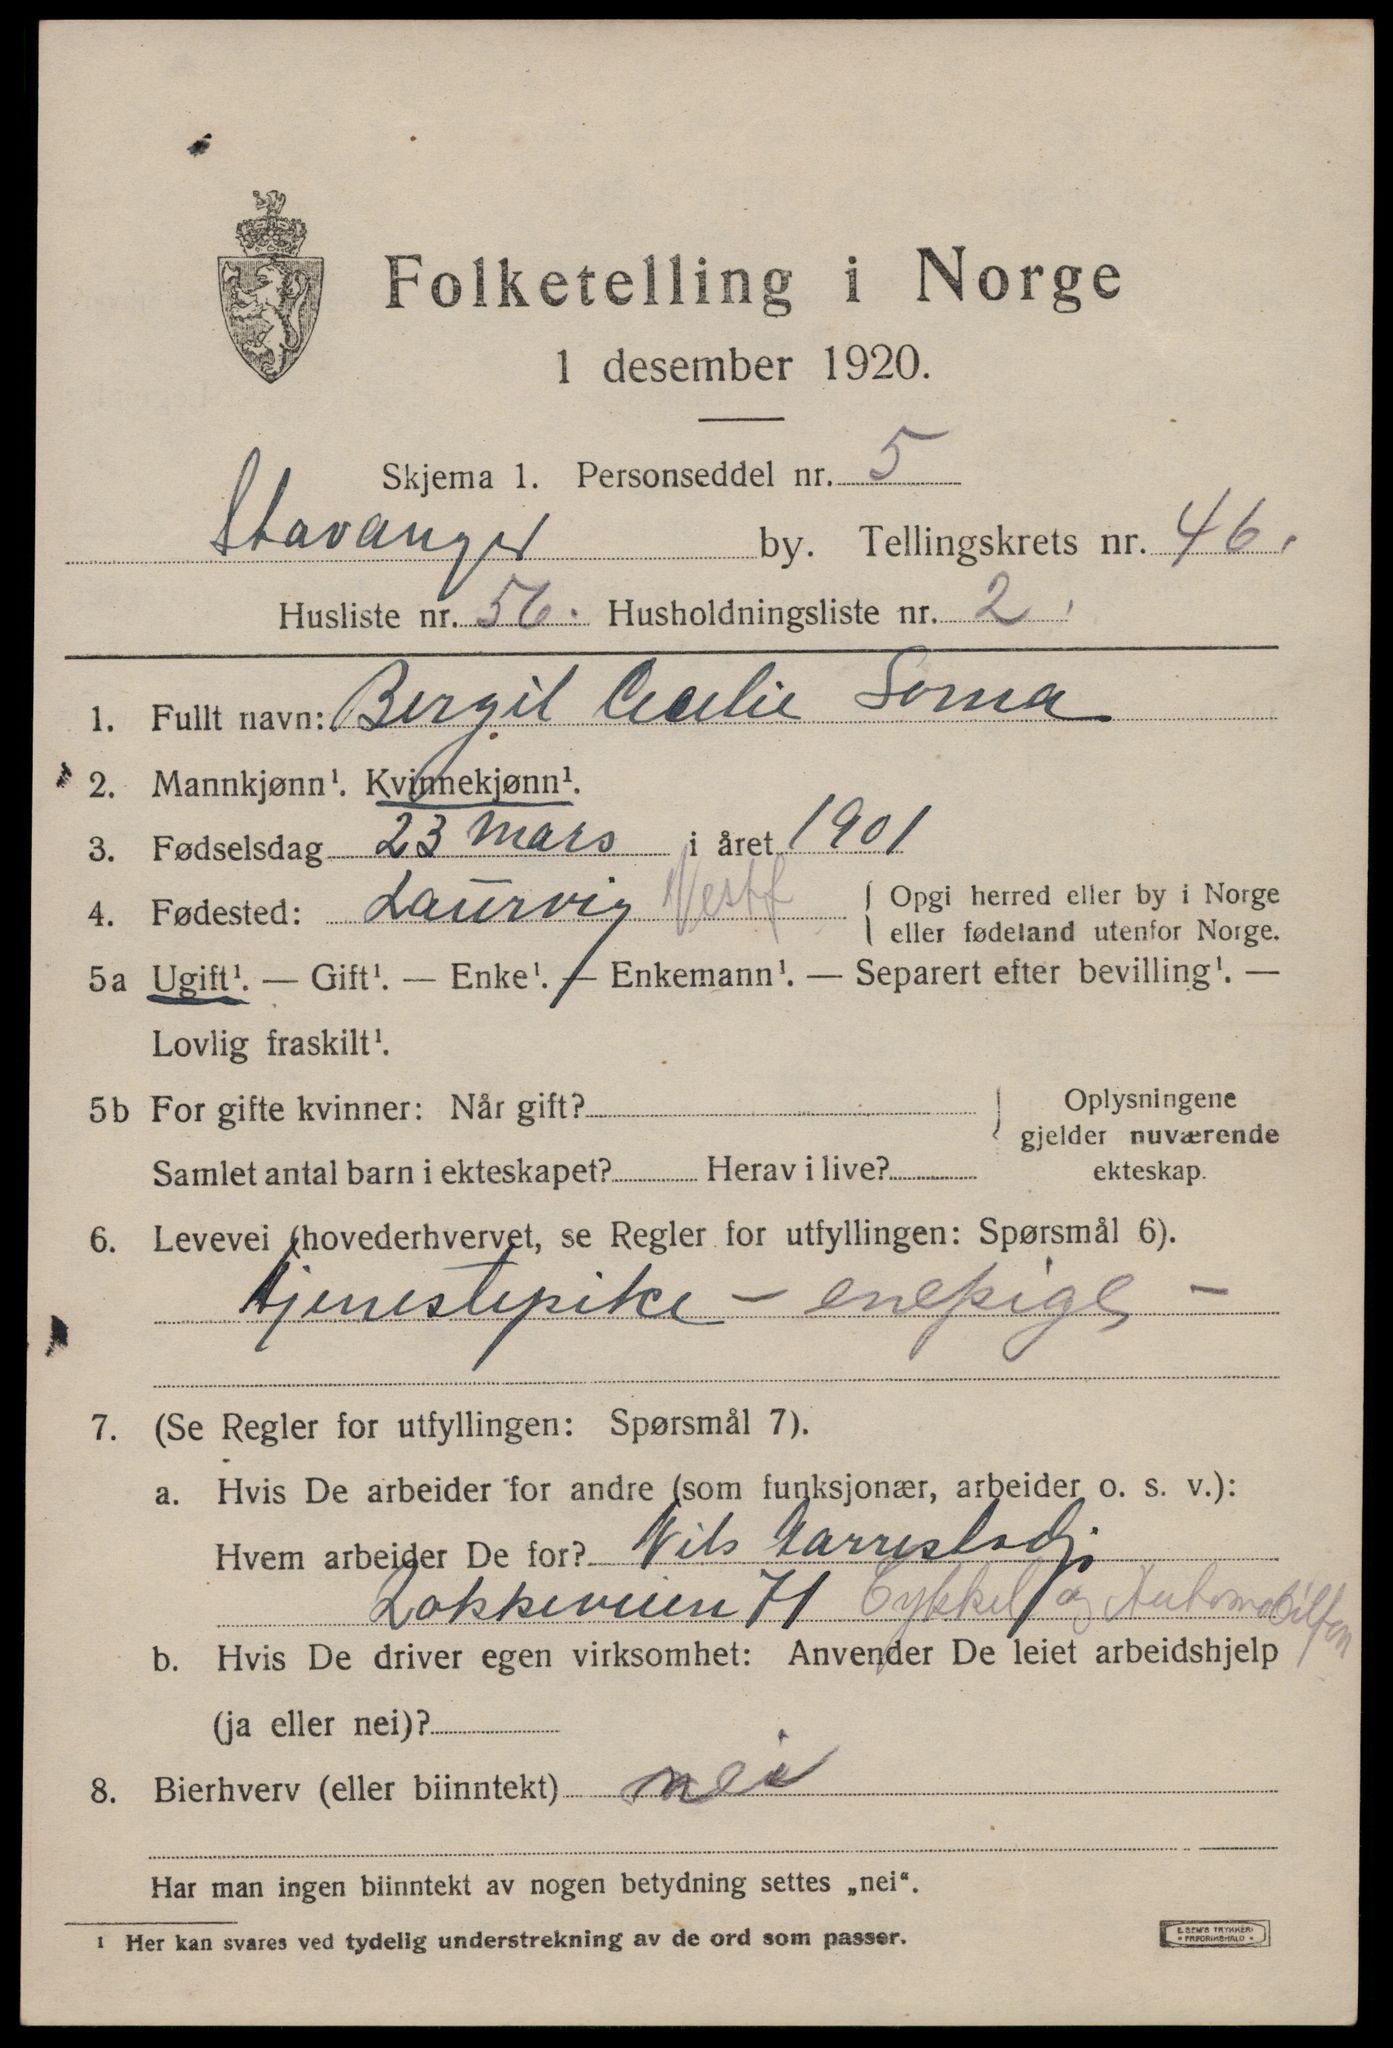 Folketelling i Norge
1 desember 1920.
Skjema 1. Personseddel nr. 5
Stavanger by. Tellingskrets nr. 46.
Husliste nr. 56. Husholdningsliste nr. 2.
1. Fullt navn: Bergit Cecelie Soma
2. Mannkjønn¹. Kvinnekjønn¹.
3. Fødselsdag 23 mars i året 1901
4. Fødested: Laurvig Vestf { Opgi herred eller by i Norge
eller fødeland utenfor Norge.
5a Ugift¹. — Gift¹. — Enke¹. — Enkemann¹. — Separert efter bevilling¹. —
Lovlig fraskilt¹.
5b For gifte kvinner: Når gift? } Oplysningene
gjelder nuværende
Samlet antal barn i ekteskapet? Herav i live? ekteskap.
6. Levevei (hovederhvervet, se Regler for utfyllingen: Spørsmål 6).
tjenestepike – enepige –
7. (Se Regler for utfyllingen: Spørsmål 7).
a. Hvis De arbeider for andre (som funksjonær, arbeider o. s. v.):
Hvem arbeider De for? Nils
Løkkeveien 71 Cykkel og Automobilfor
b. Hvis De driver egen virksomhet: Anvender De leiet arbeidshjelp
(ja eller nei)?
8. Bierhverv (eller biinntekt) nei
Har man ingen biinntekt av nogen betydning settes „nei“.
¹ Her kan svares ved tydelig understrekning av de ord som passer.
E. SEM'S TRYKKERI
• FREDRIKSHALD •